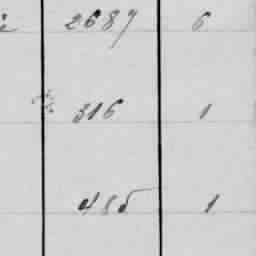 2687 6
316 1
485 1